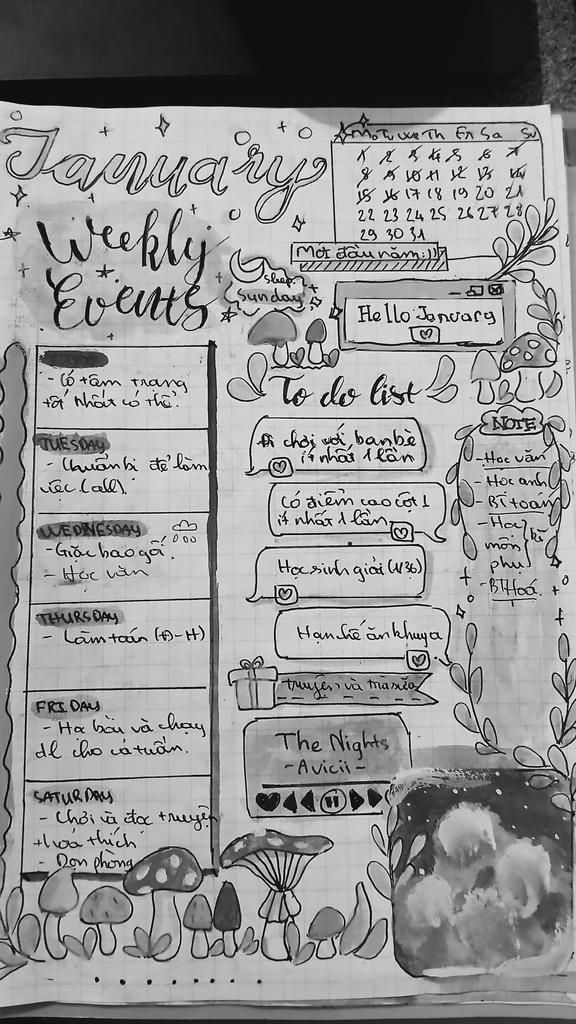 January
Weekly
Events
Mo Tu We Th Fr Sa Su
1 2 3 4 5 6 7
8 9 10 11 12 13 14
15 16 17 18 19 20 21
22 23 24 25 26 27 28
29 30 31
Mới đầu năm:))
sleep.
Sunday
Hello January
- Có tâm trạng
tốt nhất có thể.
TUESDAY
- Chuẩn bị để làm
việc (all).
WEDNESDAY
- Giặc bao gối.
- Học văn
THURSDAY
- Làm toán (Đ-H)
FRIDAY
và chạy
dl cho cả tuần.
SATURDAY
- Chơi và đọc truyện
+ hoá thích
- Dọn phòng
To do list
Đi chơi với bạn bè
ít nhất 1 lần
Có điểm cao cột 1
ít nhất 1 lần
Học sinh giỏi (1/36)
Hạn chế ăn khuya
truyện và trà sữa
The Nights
- Avicii -
NOTE
- Học văn
- Học anh
- BT toán
- Học kĩ
môn
phụ
- BT Hoá.